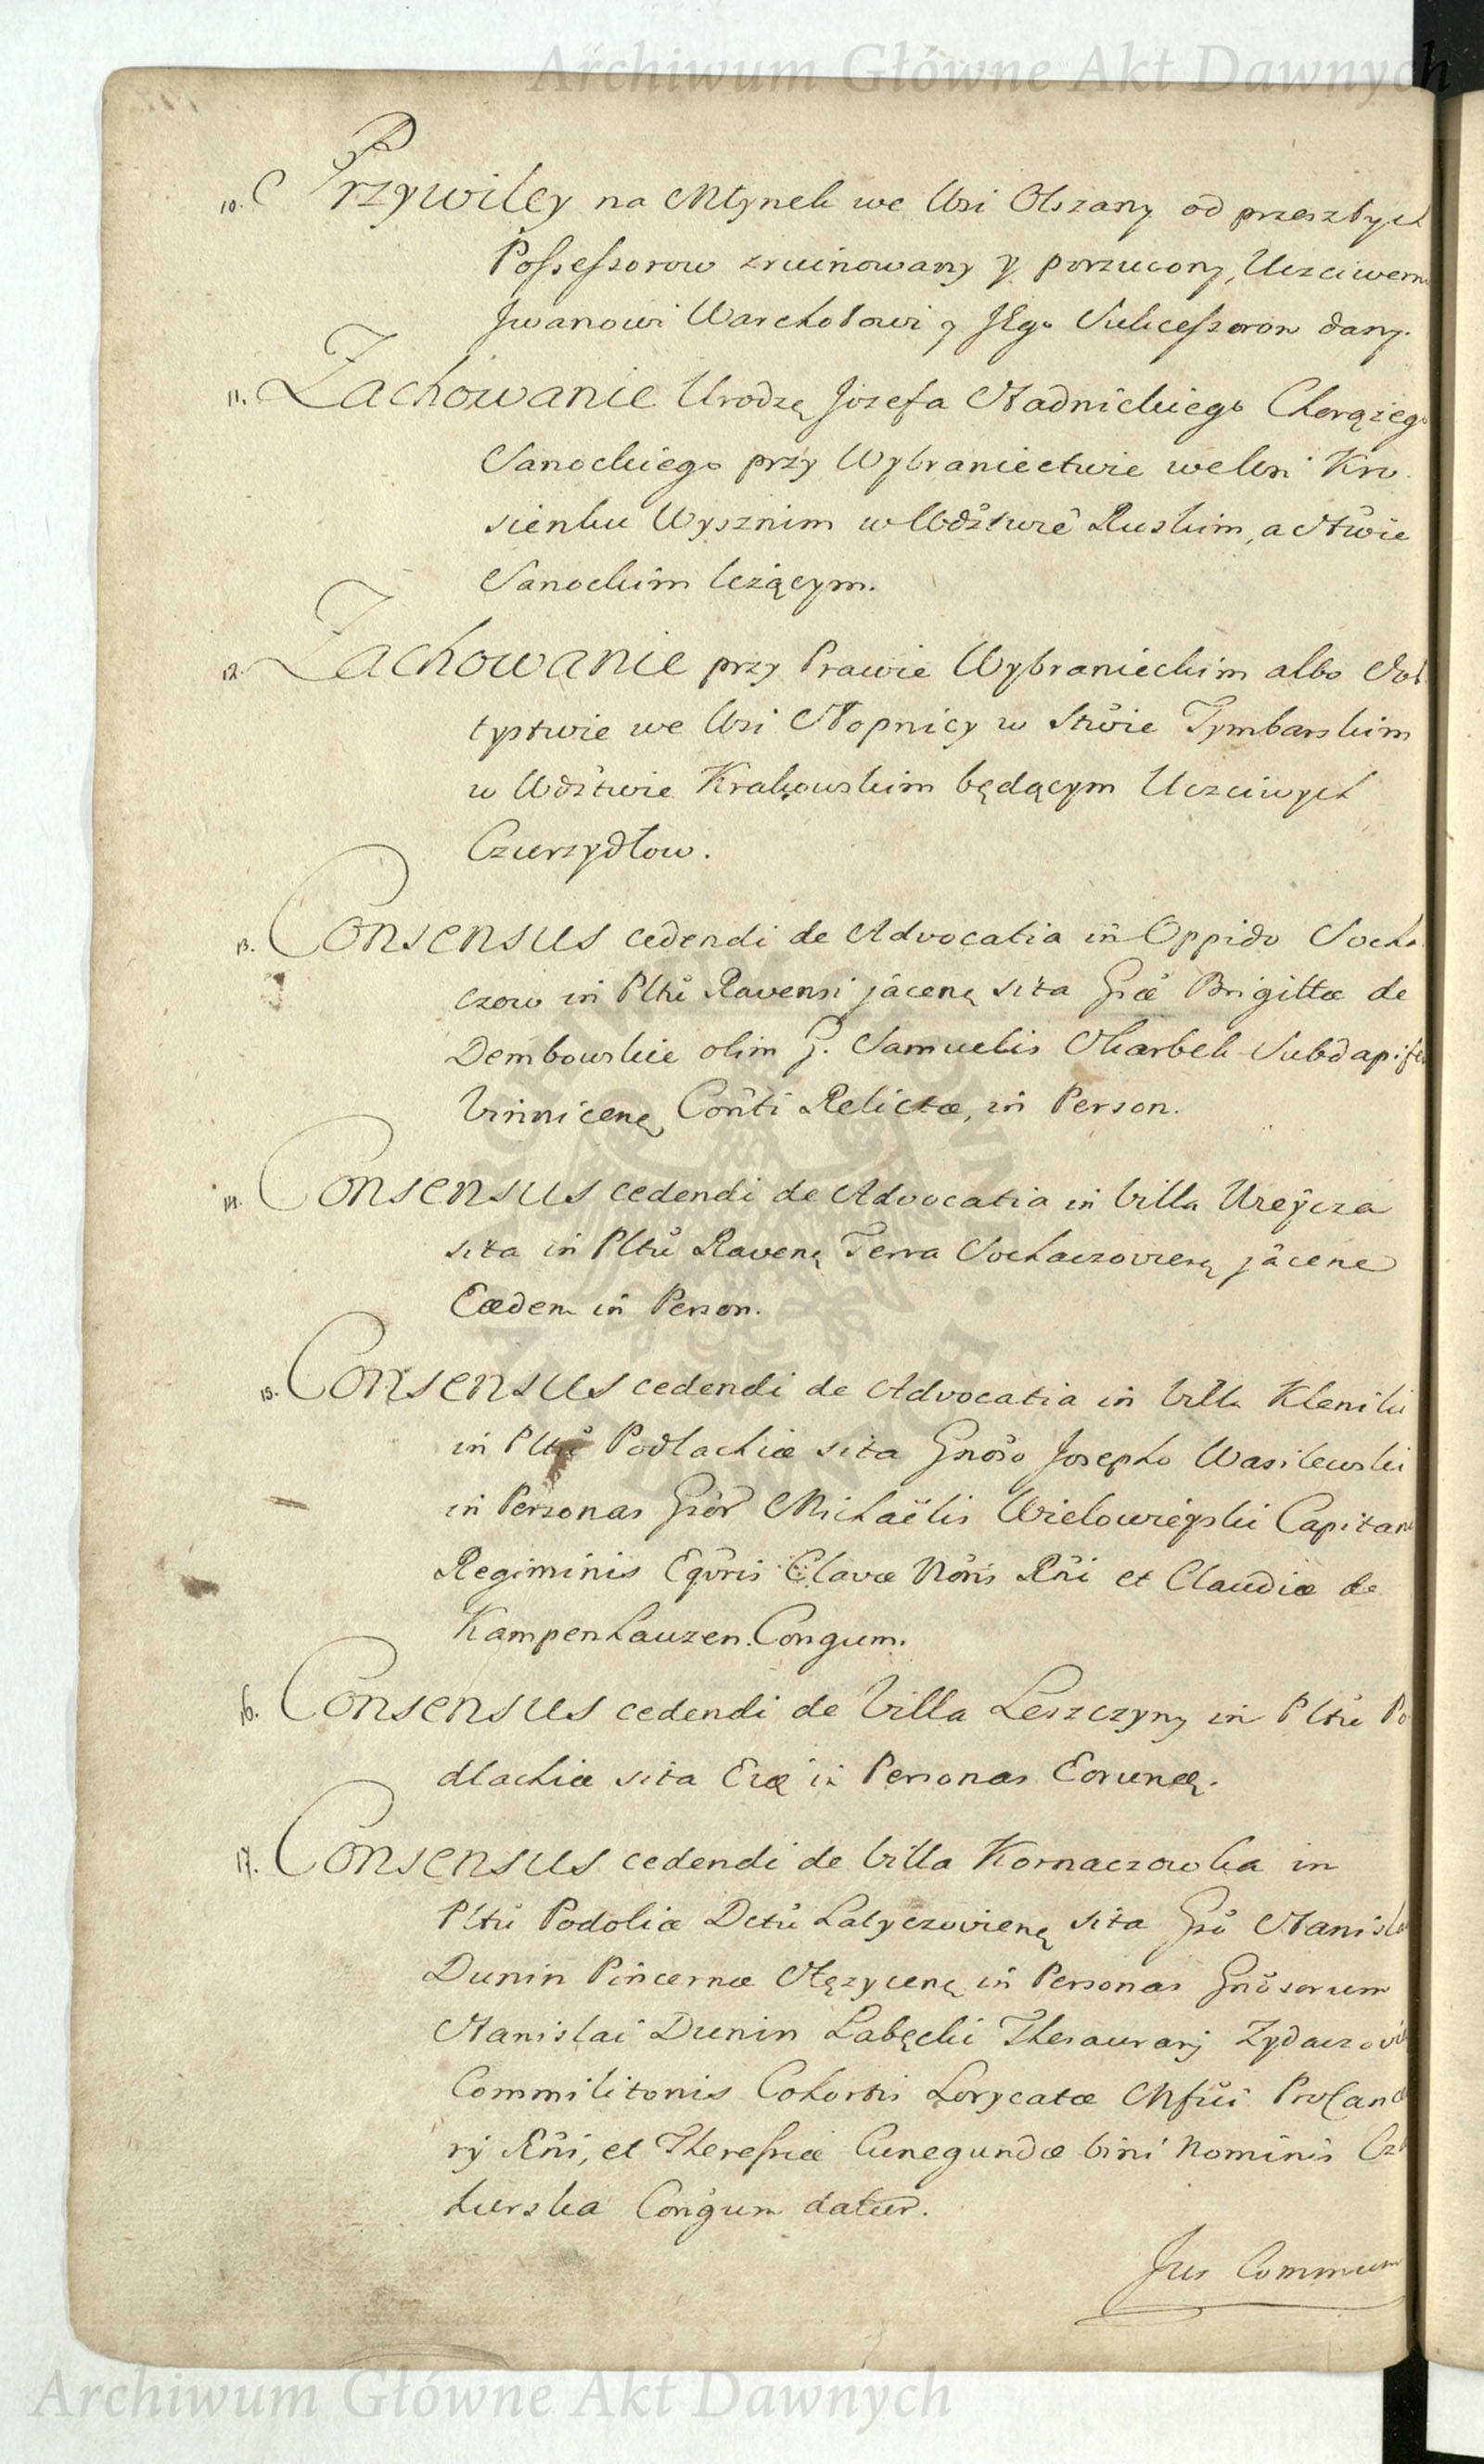 Archiwum Główne Akt Dawnych
10. Przywiley na Młynek we Wsi Olszany od przeszłych
Possessorow zruinowany y porzucony, Uczciwem
Jwanowi Warchołowi y JEgo Sukcessorom dany.
11. Zachowanie Urodzę Jozefa Stadnickiego Chorążego
Sanockiego przy Wybraniectwie we Wsi Kro
sienku Wysznim w Wdztwie Ruskim, a Stwie
Sanockim leżącym.
12. Zachowanie przy Prawie Wybranieckim albo Soł
tystwie we Wsi Słopnicy w Stwie Tymbarskim
w Wdztwie Krakowskim będącym Uczciwych
Czurzydłow.
13. Consensus cedendi de Advocatia in Oppido Socha
czow in Pltu Ravensi jacenę sita Gsæ Brigittæ de
Dembowskie olim G. Samuelis Skarbek Subdapife
Vinnicenę Conti Relictæ, in Person.
14. Consensus cedendi de Advocatia in Villa Ureycza
sita in Pltu Ravenę Terra Sochaczovienę jacene
Eædem in Person.
15. Consensus cedendi de Advocatia in Villa Kleniki
in Pltu Podlachiæ sita Gnoso Josepho Wasilewski
in Personas Gsor Michaëlis Wielowieyski Capitan
Regiminis Eqvris Clavæ Noris Rni et Claudiæ de
Kampenhauzen Congum.
16. Consensus cedendi de Villa Leszczyny in Pltu Po
dlachiæ sita in Personas Eorunę.
17. Consensus cedendi de Villa Kornaczowka in
Pltu Podoliæ Dctu Latyczovienę sita Gso Stanisla
Dunin Pincernæ Stężycenę in Personas Gnosorum
Stanislai Dunin Łabęcki Thesaurarij Zydaczovi
Commilitonis Cohortis Lorycatæ Mfui ProCan
rij Rni, et Theressiæ Cunegundæ bini Nominis
hurska Congum datur.
Jus Commun
Archiwum Główne Akt Dawnych